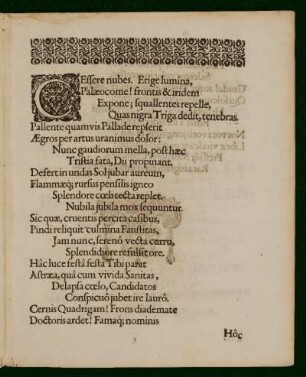 CEssere nubes. Erige lumina,
Palæocome! frontis & iridem
Expone; squallentes repelle,
Quas nigra Triga dedit, tenebras.
Pallente quamvis Pallade repserit
Ægros per artus uranimus dolor:
Nunc gaudiorum mella, post hæc
Tristia fata, Dii propinant.
Desert in undas Sol jubar aureum,
Flammæq; rursus pensilis igneo
Splendore cœli tecta replet.
Nubila jubila mox sequuntur.
Sic quæ, cruentis percita casibus,
Pindi reliquit culmina Faustitas,
Jam nunc, serenô vecta curru,
Splendidiore refulsit ore.
Hâc luce festâ festa Tibi parat
Astræa, quâ cum vivida Sanitas,
Delapsa cœlo, Candidatos
Conspicuô jubet ire laurô.
Cernis Quadrigam! Froris diademate
Doctoris ardet! Famaq; nominis
Hôc